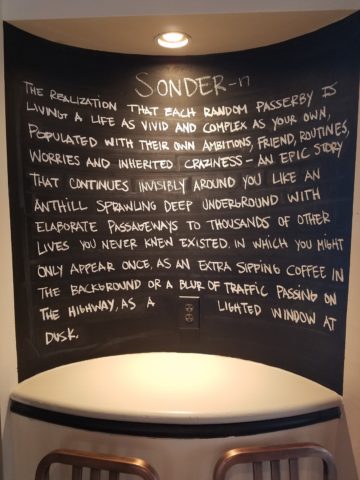 SONDER-n
THE REALIZATION THAT EACH RANDOM PASSERBY IS
LIVING A LIFE AS VIVID AND COMPLEX AS YOUR OWN,
POPULATED WITH THEIR OWN AMBITIONS, FRIEND, ROUTINES,
WORRIES AND INHERITED CRAZINESS - AN EPIC STORY
THAT CONTINUES INVISIBLY AROUND YOU LIKE AN
ANTHILL SPRAWLING DEEP UNDERGROUND WITH
ELABORATE PASSAGEWAYS TO THOUSANDS OF OTHER
LIVES YOU NEVER KNEW EXISTED, IN WHICH YOU MIGHT
ONLY APPEAR ONCE, AS AN EXTRA SIPPING COFFEE IN
THE BACKGROUND OR A BLUR OF TRAFFIC PASSING ON
THE HIGHWAY, AS A LIGHTED WINDOW AT
DUSK.